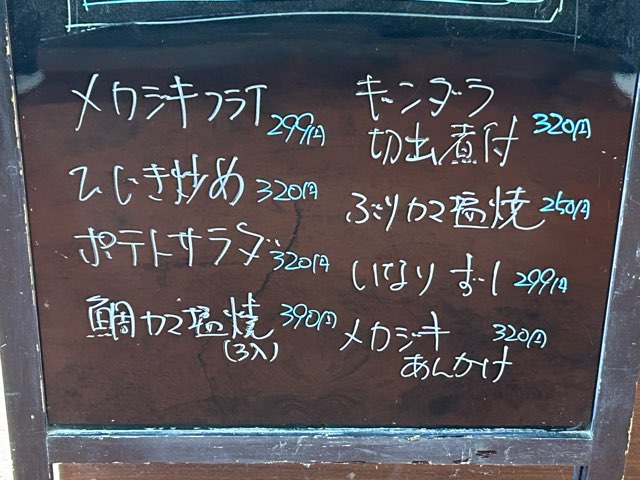 メカジキフライ 299円
ひじき炒め 320円
ポテトサラダ 320円
鯛カマ塩焼 390円
(3入)
ギンダラ
切出煮付 320円
ぶりカマ塩焼 250円
いなりずし 299円
メカジキ 320円
あんかけ